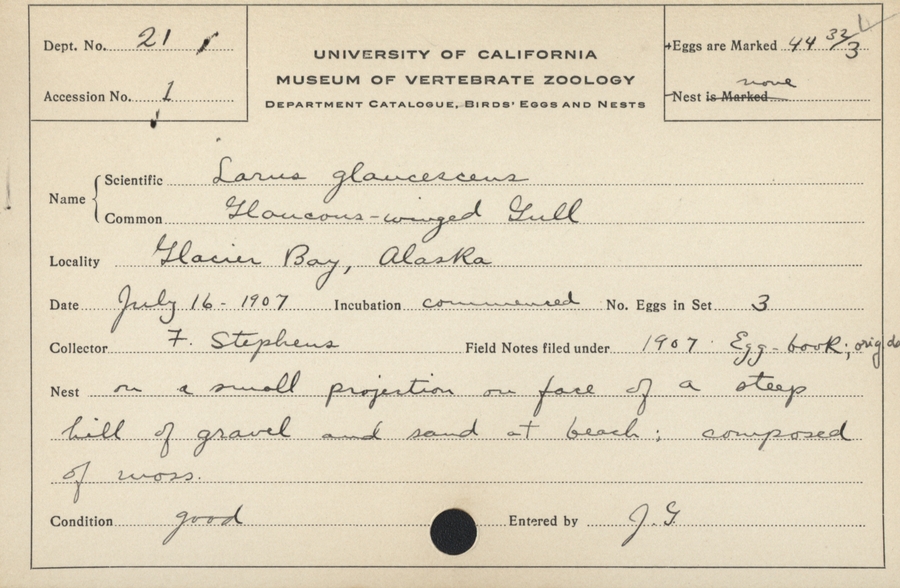 Dept. No. 21
UNIVERSITY OF CALIFORNIA
MUSEUM OF VERTEBRATE ZOOLOGY
DEPARTMENT CATALOGUE, BIRDS' EGGS AND NESTS
Eggs are Marked 44 32/3
Accession No. 1
none
Nest is Marked
Name
Scientific Larus glaucescens
Common Glaucous-winged Gull
Locality Glacier Bay, Alaska
Date July 16 - 1907 Incubation commenced No. Eggs in Set 3
Collector F. Stephens Field Notes filed under 1907 Egg-book; orig.
Nest on a small projection on face of a steep
hill of gravel and sand at beach; composed
of moss.
Condition good Entered by J.G.